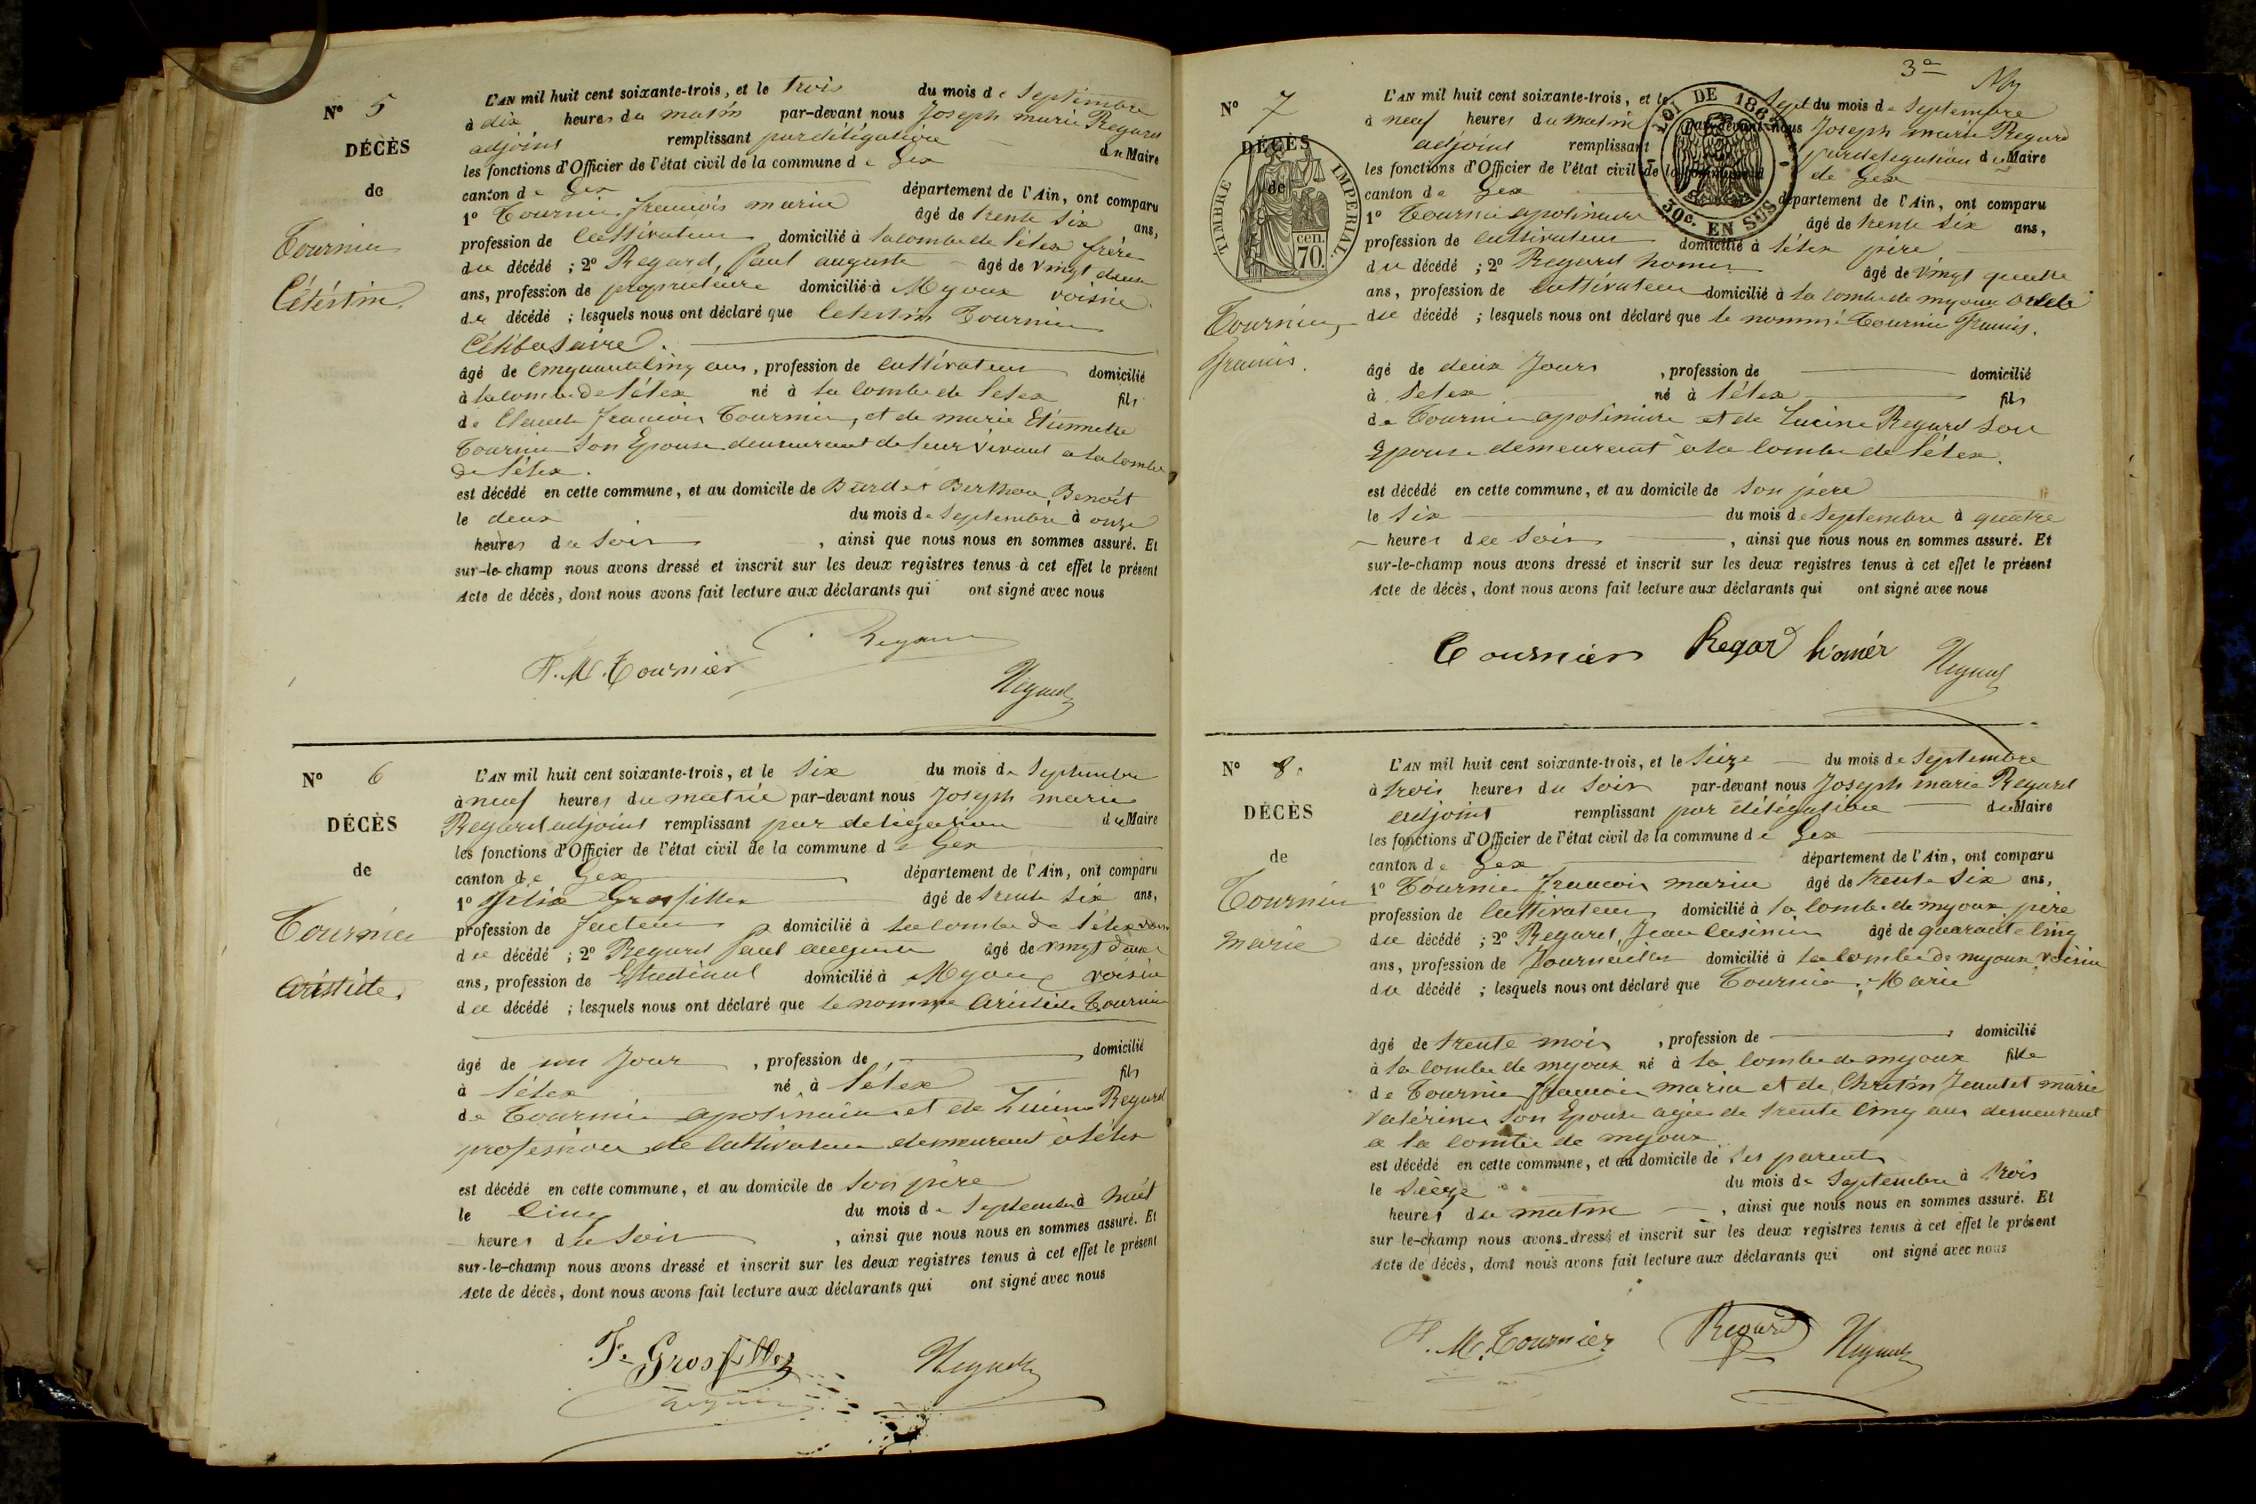 N° 5
DÉCÈS
de
Tournier
Célestin.
L'AN mil huit cent soixante-trois, et le trois du mois de Septembre
à dix heures du matin par-devant nous Joseph marie Regard
adjoint remplissant par délégation du Maire
les fonctions d'Officier de l'état civil de la commune de Gex
canton de Gex département de l'Ain, ont comparu
1° Tournier françois marie âgé de trente six ans,
profession de Cultivateur domicilié à la combe de Lélex frère
du décédé ; 2° Regard, Paul auguste âgé de vingt deux
ans, profession de propriétaire domicilié à Myoux voisin
du décédé ; lesquels nous ont déclaré que Celestin Tournier
Célibataire.
âgé de Cinquante cinq ans, profession de cultivateur domicilié
à la combe de Lélex né à la Combe de Lelex fils
de Claude François Tournier, et de marie Etiennette
Tournier Son Epouse demeurant de leur vivant a la Combe
de Lélex.
est décédé en cette commune, et au domicile de Burdet Berthou Benoit
le deux du mois de Septembre à onze
heures du Soir, ainsi que nous nous en sommes assuré. Et
sur-le-champ nous avons dressé et inscrit sur les deux registres tenus à cet effet le présent
Acte de décès, dont nous avons fait lecture aux déclarants qui ont signé avec nous
Regard
F. M. Tournier
N° 6
DÉCÈS
de
Tournier
Aristide.
L'AN mil huit cent soixante-trois, et le Six du mois de Septembre
à neuf heures du matin par-devant nous Joseph marie
Regard adjoint remplissant par delegation du Maire
les fonctions d'Officier de l'état civil de la commune de Gex
canton de Gex département de l'Ain, ont comparu
1° Félix Grosfilley âgé de trente Six ans,
profession de facteur domicilié à la combe de Lélex
du décédé ; 2° Regard Paul auguste âgé de vingt deux
ans, profession de Etudiant domicilié à Myoux voisin
du décédé ; lesquels nous ont déclaré que le nommé Aristide Tournier
âgé de un Jour, profession de domicilié
à Lélex né à Lélex fils
de Tournier apolinaire et de Lucine Regard
profession de Cultivateur demeurant à Lélex
est décédé en cette commune, et au domicile de Son père
le Cinq du mois de Septembre à huit
heures du Soir, ainsi que nous nous en sommes assuré. Et
sur-le-champ nous avons dressé et inscrit sur les deux registres tenus à cet effet le présent
Acte de décès, dont nous avons fait lecture aux déclarants qui ont signé avec nous
Fe Grosfilley
3e
N° 7
DÉCÈS
de
TIMBRE IMPÉRIAL
cen. 70.
LOI DE 1862
30c. EN SUS
Tournier
Francis.
L'AN mil huit cent soixante-trois, et le Sept du mois de Septembre
à neuf heures du matin par-devant nous Joseph marie Regard
adjoint remplissant par delegation du Maire
les fonctions d'Officier de l'état civil de la commune de Gex
canton de Gex département de l'Ain, ont comparu
1° Tournier apolinaire âgé de trente Six ans,
profession de Cultivateur domicilié à Lélex père
du décédé ; 2° Regard homer âgé de vingt quatre
ans, profession de Cultivateur domicilié à la Combe de myoux oncle
du décédé ; lesquels nous ont déclaré que le nommé Tournier Francis.
âgé de deux Jours, profession de domicilié
à Lelex né à Lélex fils
de Tournier apolinaire et de Lucine Regard son
Epouse demeurant à la combe de Lélex.
est décédé en cette commune, et au domicile de Son père
le Six du mois de Septembre à quatre
heures du Soir, ainsi que nous nous en sommes assuré. Et
sur-le-champ nous avons dressé et inscrit sur les deux registres tenus à cet effet le présent
Acte de décès, dont nous avons fait lecture aux déclarants qui ont signé avec nous
Tournier Regard homér
N° 8.
DÉCÈS
de
Tournier
marie
L'AN mil huit cent soixante-trois, et le Sieze du mois de Septembre
à trois heures du Soir par-devant nous Joseph marie Regard
adjoint remplissant par délégation du Maire
les fonctions d'Officier de l'état civil de la commune de Gex
canton de Gex département de l'Ain, ont comparu
1° Tournier Francois marie âgé de trente Six ans,
profession de Cultivateur domicilié à la Combe de myoux père
du décédé ; 2° Regard, Jean Casimir âgé de quarante Cinq
ans, profession de domicilié à la Combe de myoux voisin
du décédé ; lesquels nous ont déclaré que Tournier, Marie
âgé de trente mois, profession de domicilié
à la Combe de myoux né à la Combe de myoux fille
de Tournier Francois marie et de Chretin Jeantet marie
Valérine Son Epouse agée de trente Cinq ans demeurant
a la Combe de myoux
est décédé en cette commune, et au domicile de Ses parents
le Sièze du mois de Septembre à trois
heures du matin, ainsi que nous nous en sommes assuré. Et
sur le-champ nous avons dressé et inscrit sur les deux registres tenus à cet effet le présent
Acte de décès, dont nous avons fait lecture aux déclarants qui ont signé avec nous
F. M. Tournier Regard